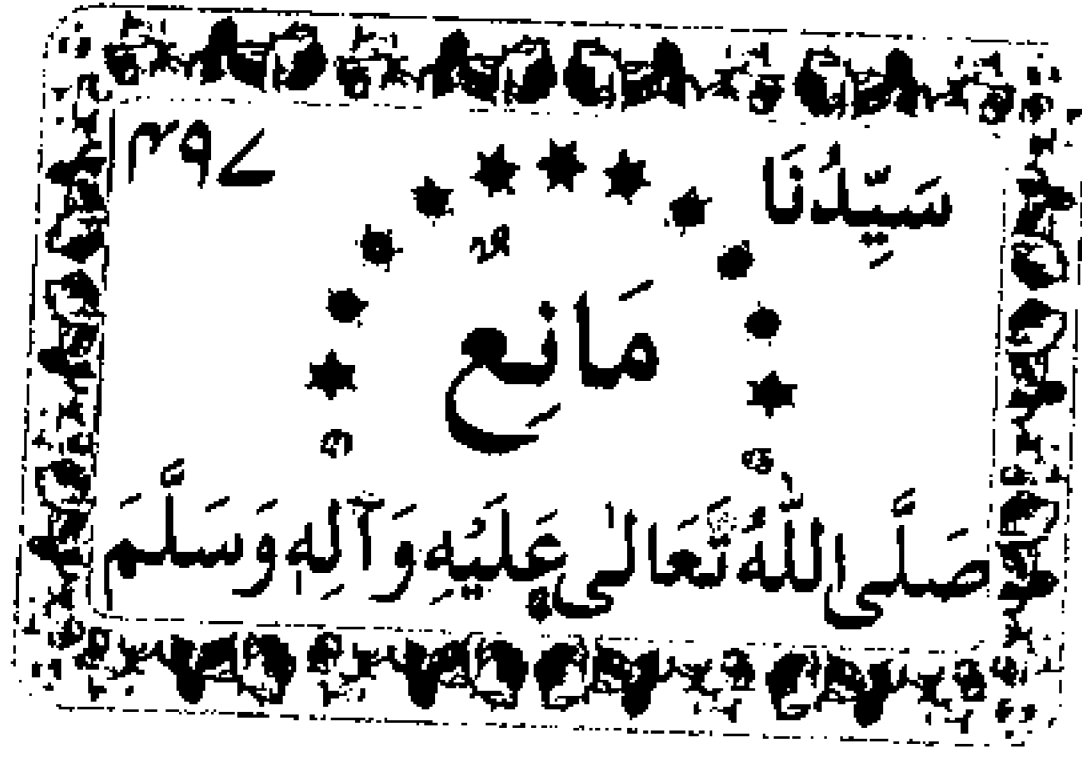 سَيِّدُنَا ۳۹۷
مَانِعٍ
صَلَّى اللّٰهُ تَعَالٰى عَلَيْهِ وَآلِهٖ وَسَلَّمَ